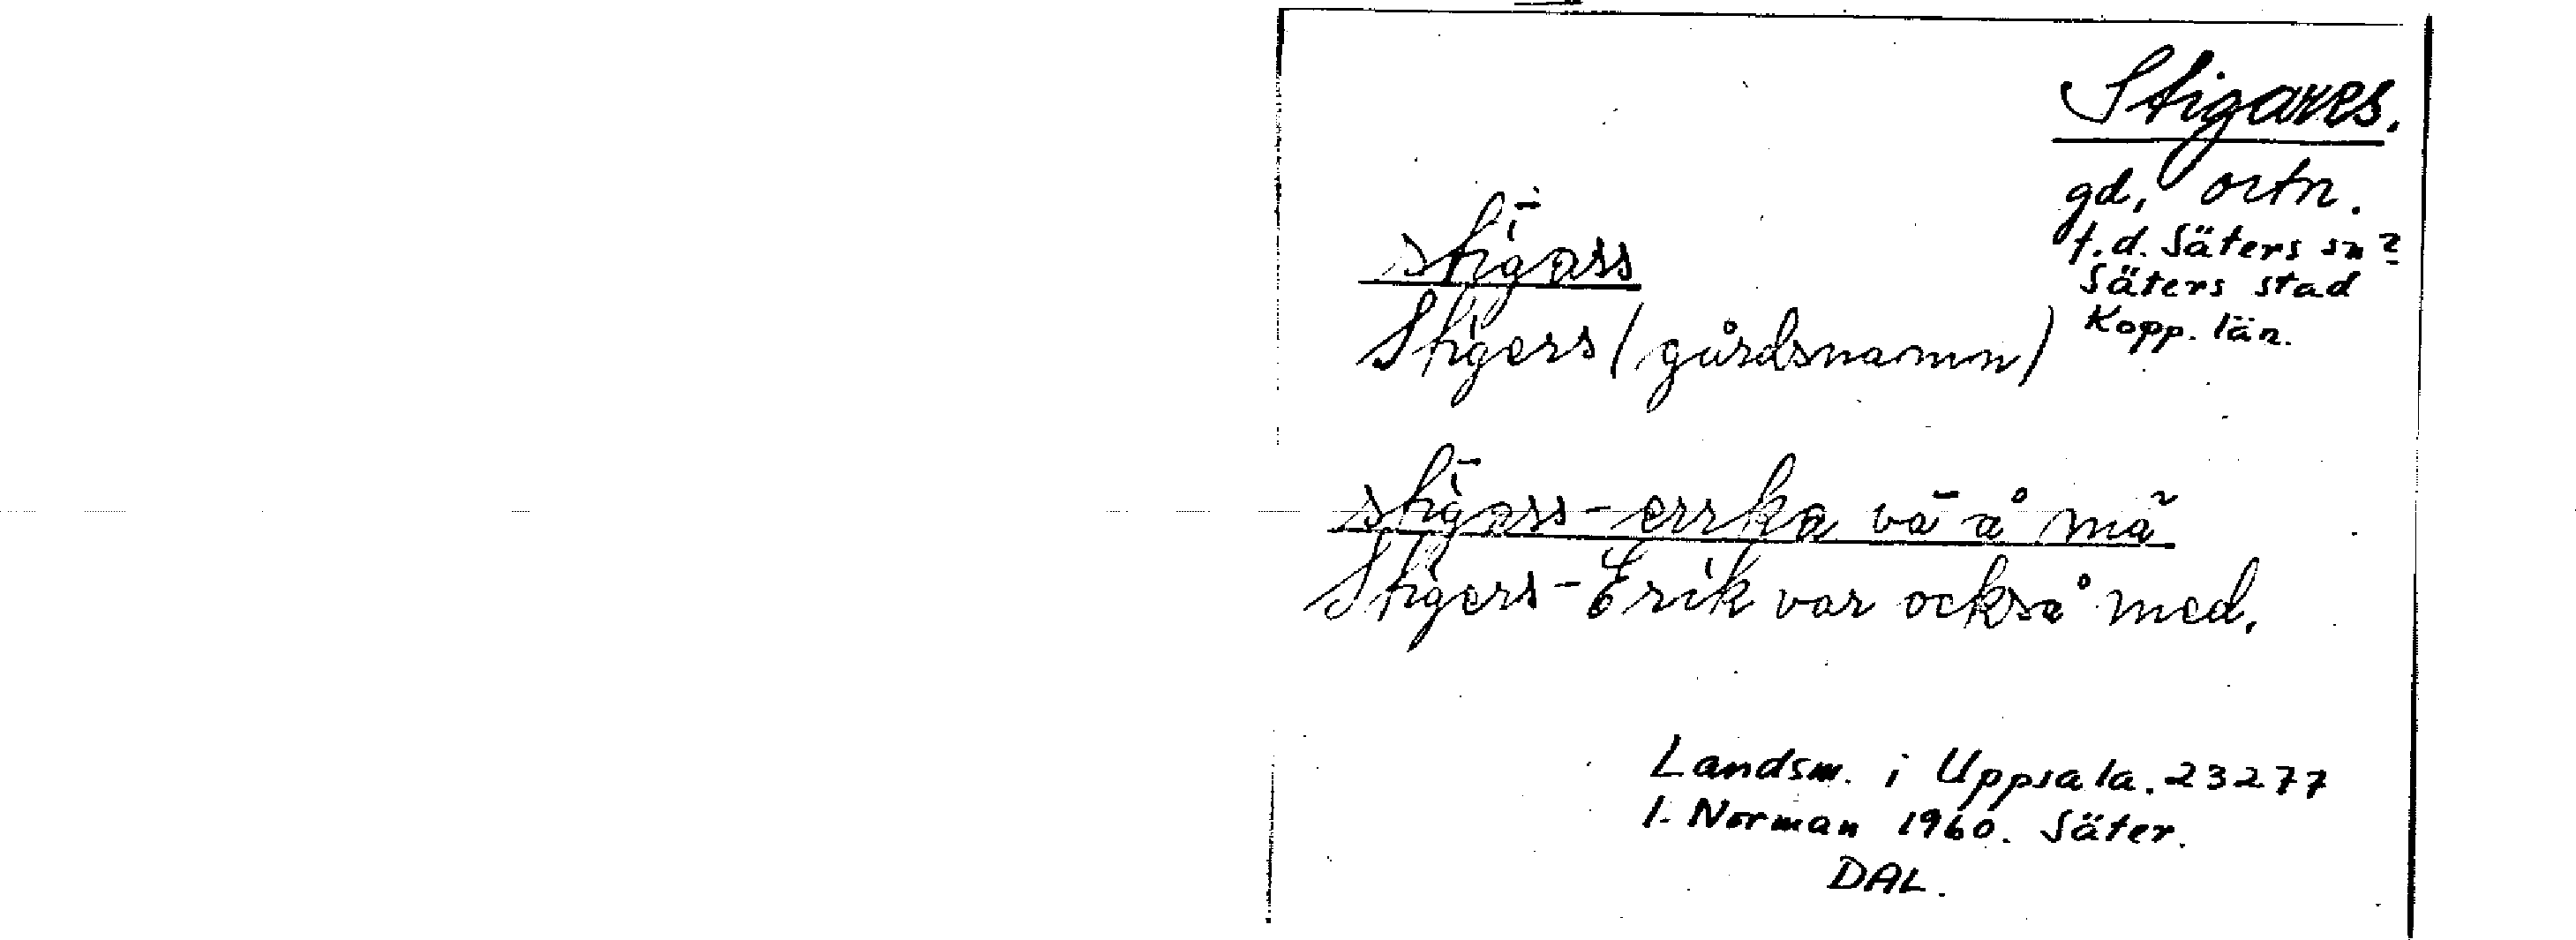 Stigares.
gd, ortn.
f.d. Säters sn?
Säters stad
Kopp. län.
stīgass
Stigers (gårdsnamn)
stīgass-errka vā å mä̃
Stigers-Erik var också med.
Landsm. i Uppsala. 23277
I. Norman 1960. Säter.
DAL.